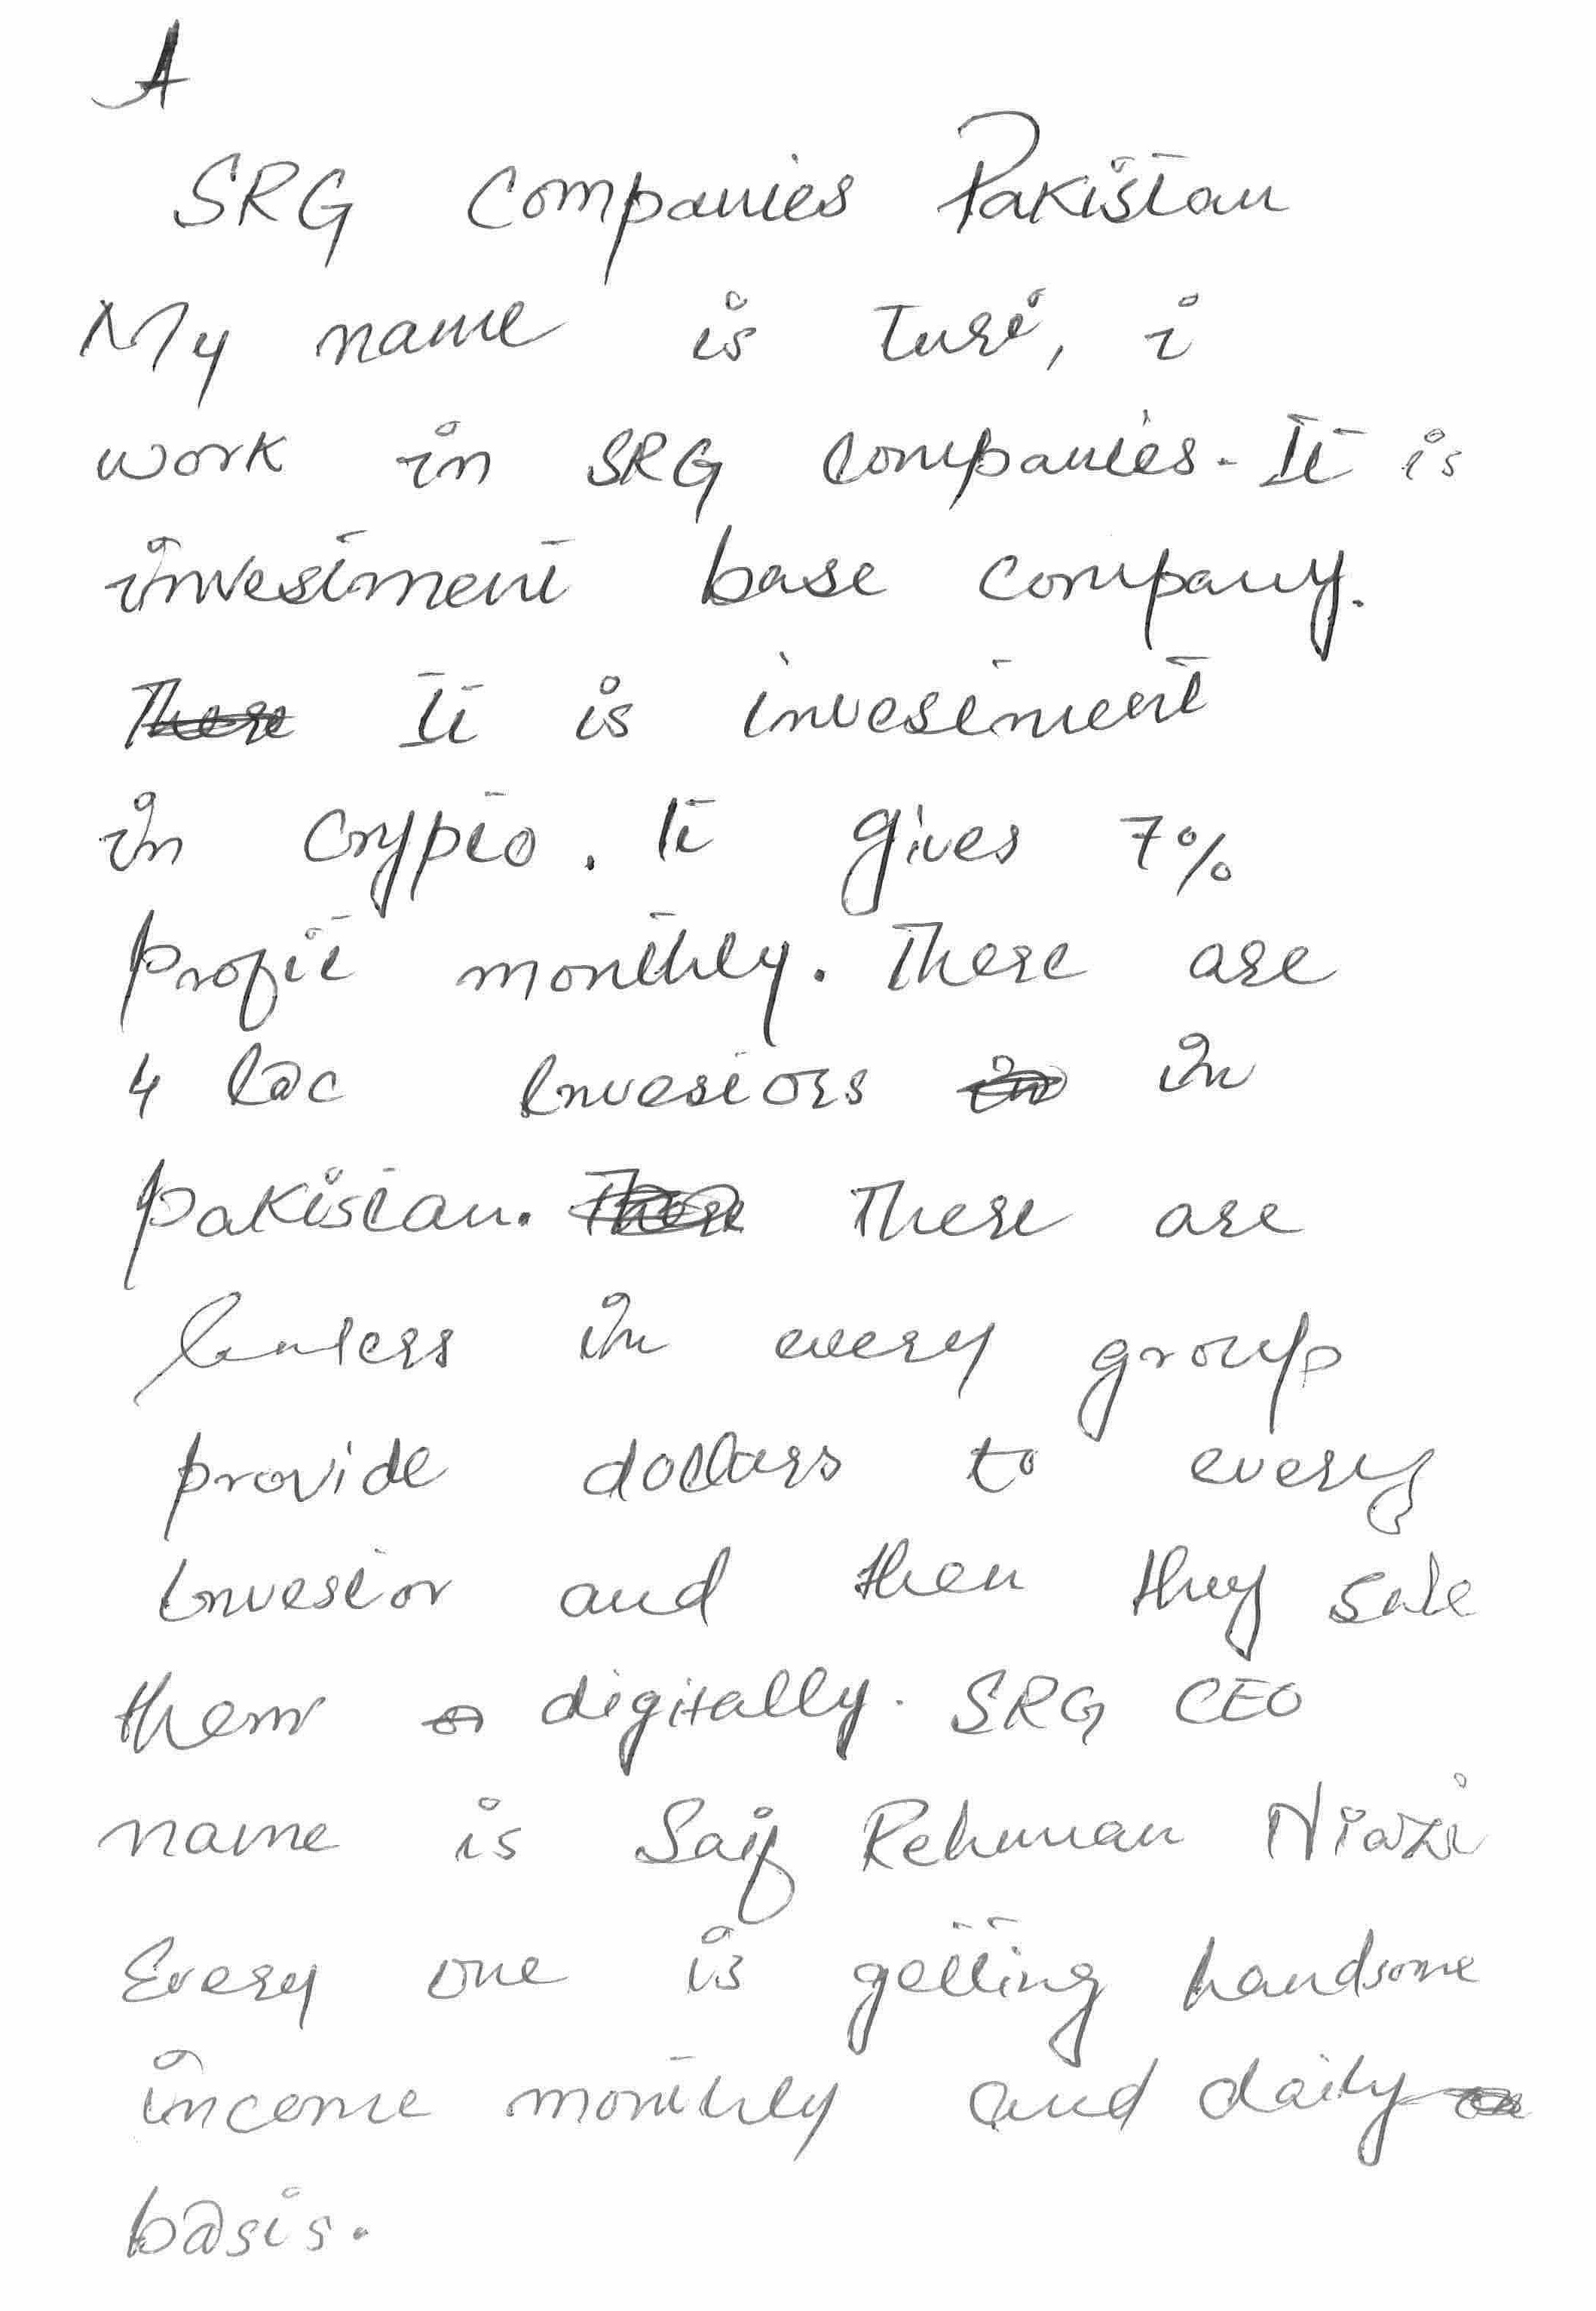 A
SRG Companies Pakistan
My name is Turi, i
work in SRG Companies. It is
investment base company.
There It is investment
in Crypto. It gives 7%
profit monthly. There are
4 lac Investors in in
Pakistan. There There are
in every group
provide dollars to every
Investor and then they sale
them digitally. SRG CEO
name is Saif Rehman Niazi
Every one is getting handsome
income monthly and daily
basis.